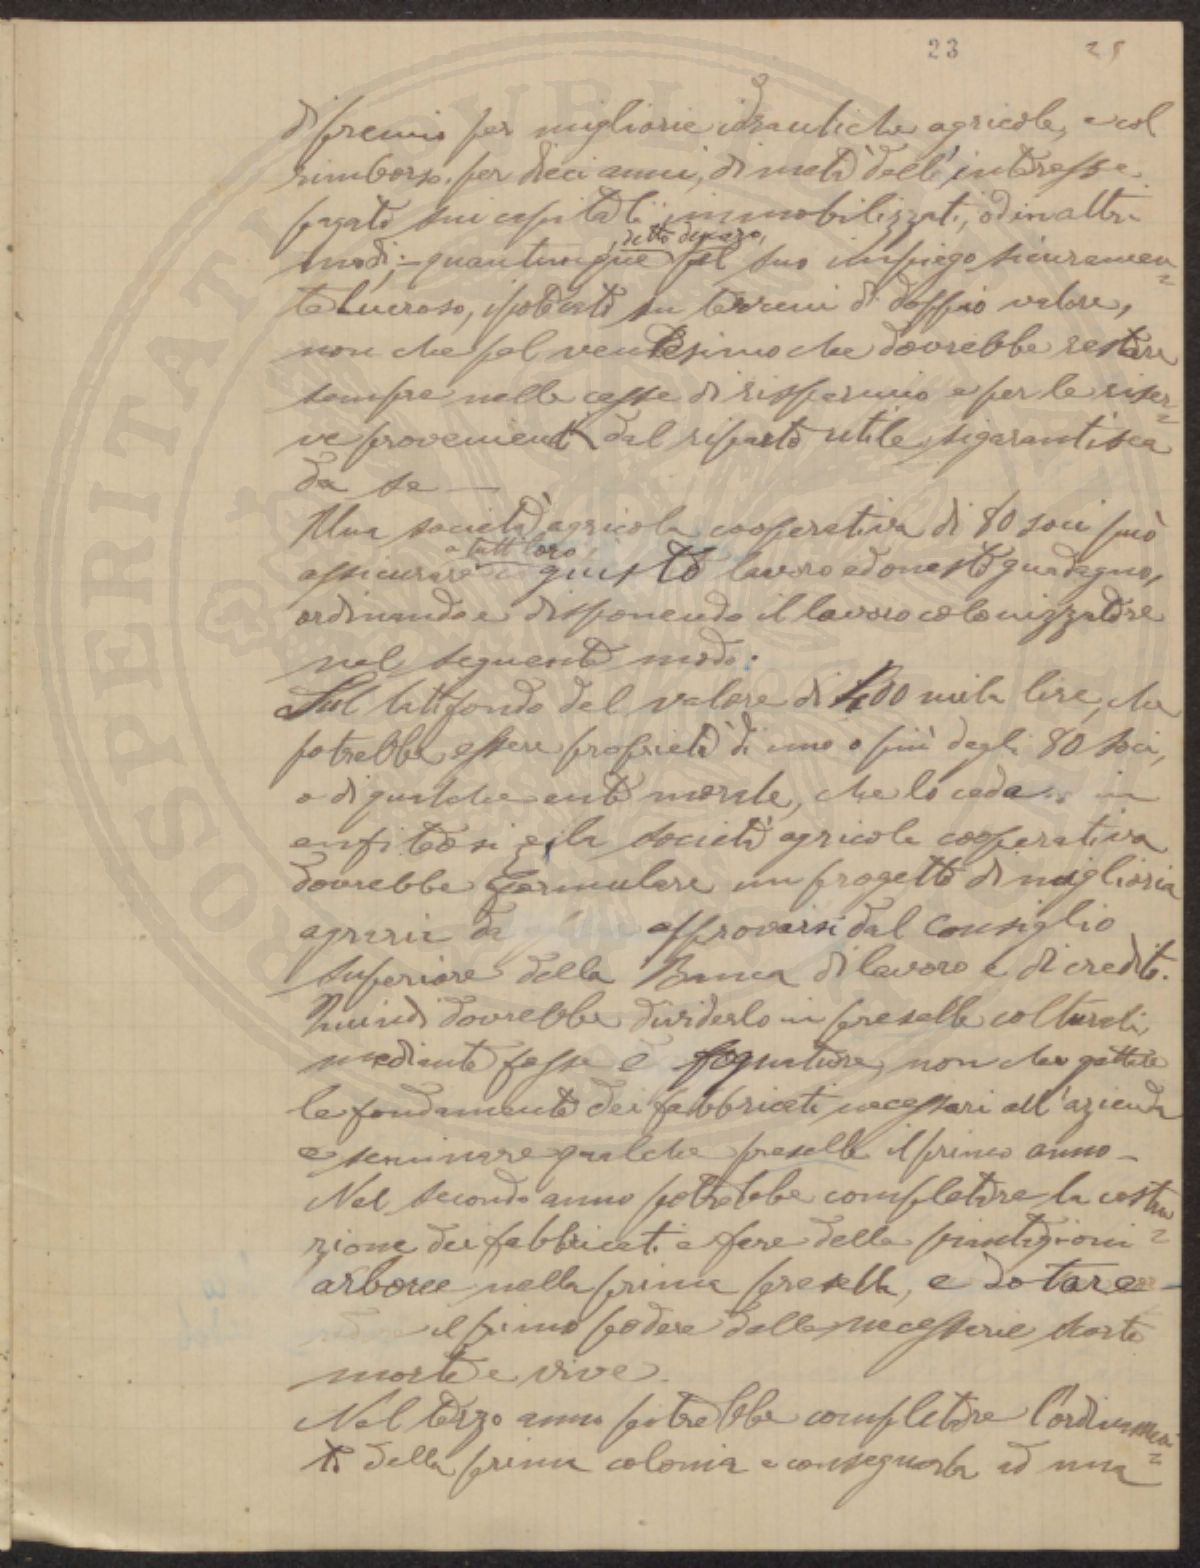 23 25
di premio per migliorie idrauliche agricole, e col
rimborso, per dieci anni, di metà dell'interesse
pagato sui capitali immobilizzati, od in altri
modi; quantunque pel suo impiego sicuramen=
detto denaro,
te lucroso, ipotecato su terreni di doppio valore,
non che pel ventesimo che dovrebbe restare
sempre nelle casse di risparmio e per le riser=
ve provenienti dal riparto utile, si garantisca
da se —
Una società agricola cooperativa di 80 soci può
a tutti loro,
assicurare giusto lavoro ed onesto guadagno,
ordinando e disponendo il lavoro colonizzatore
nel seguente modo:
Sul latifondo del valore di 400 mila lire, che
potrebbe essere proprietà di uno o più degli 80 soci,
o di qualche ente morale, che lo ceda in
enfiteusi, la società agricola cooperativa
dovrebbe formulare un progetto di miglioria
agraria da approvarsi dal Consiglio
superiore della Banca di lavoro e di credito.
Quindi dovrebbe dividerlo in preselle colturali
mediante fosse e fognature, non che gettare
le fondamenta dei fabbricati necessari all'azienda
e seminare qualche presella il primo anno —
Nel secondo anno potrebbe completare la costru=
zione dei fabbricati e fare delle piantigioni
arboree nella prima presella, e dotare
il primo podere delle necessarie scorte
morte e vive.
Nel terzo anno potrebbe completare l'ordinamen=
to della prima colonia e consegnarla ad una
PROSPERITATI PVBLICAE